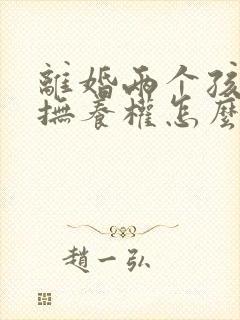 離婚兩个孩
撫養權怎麼
趙一弘